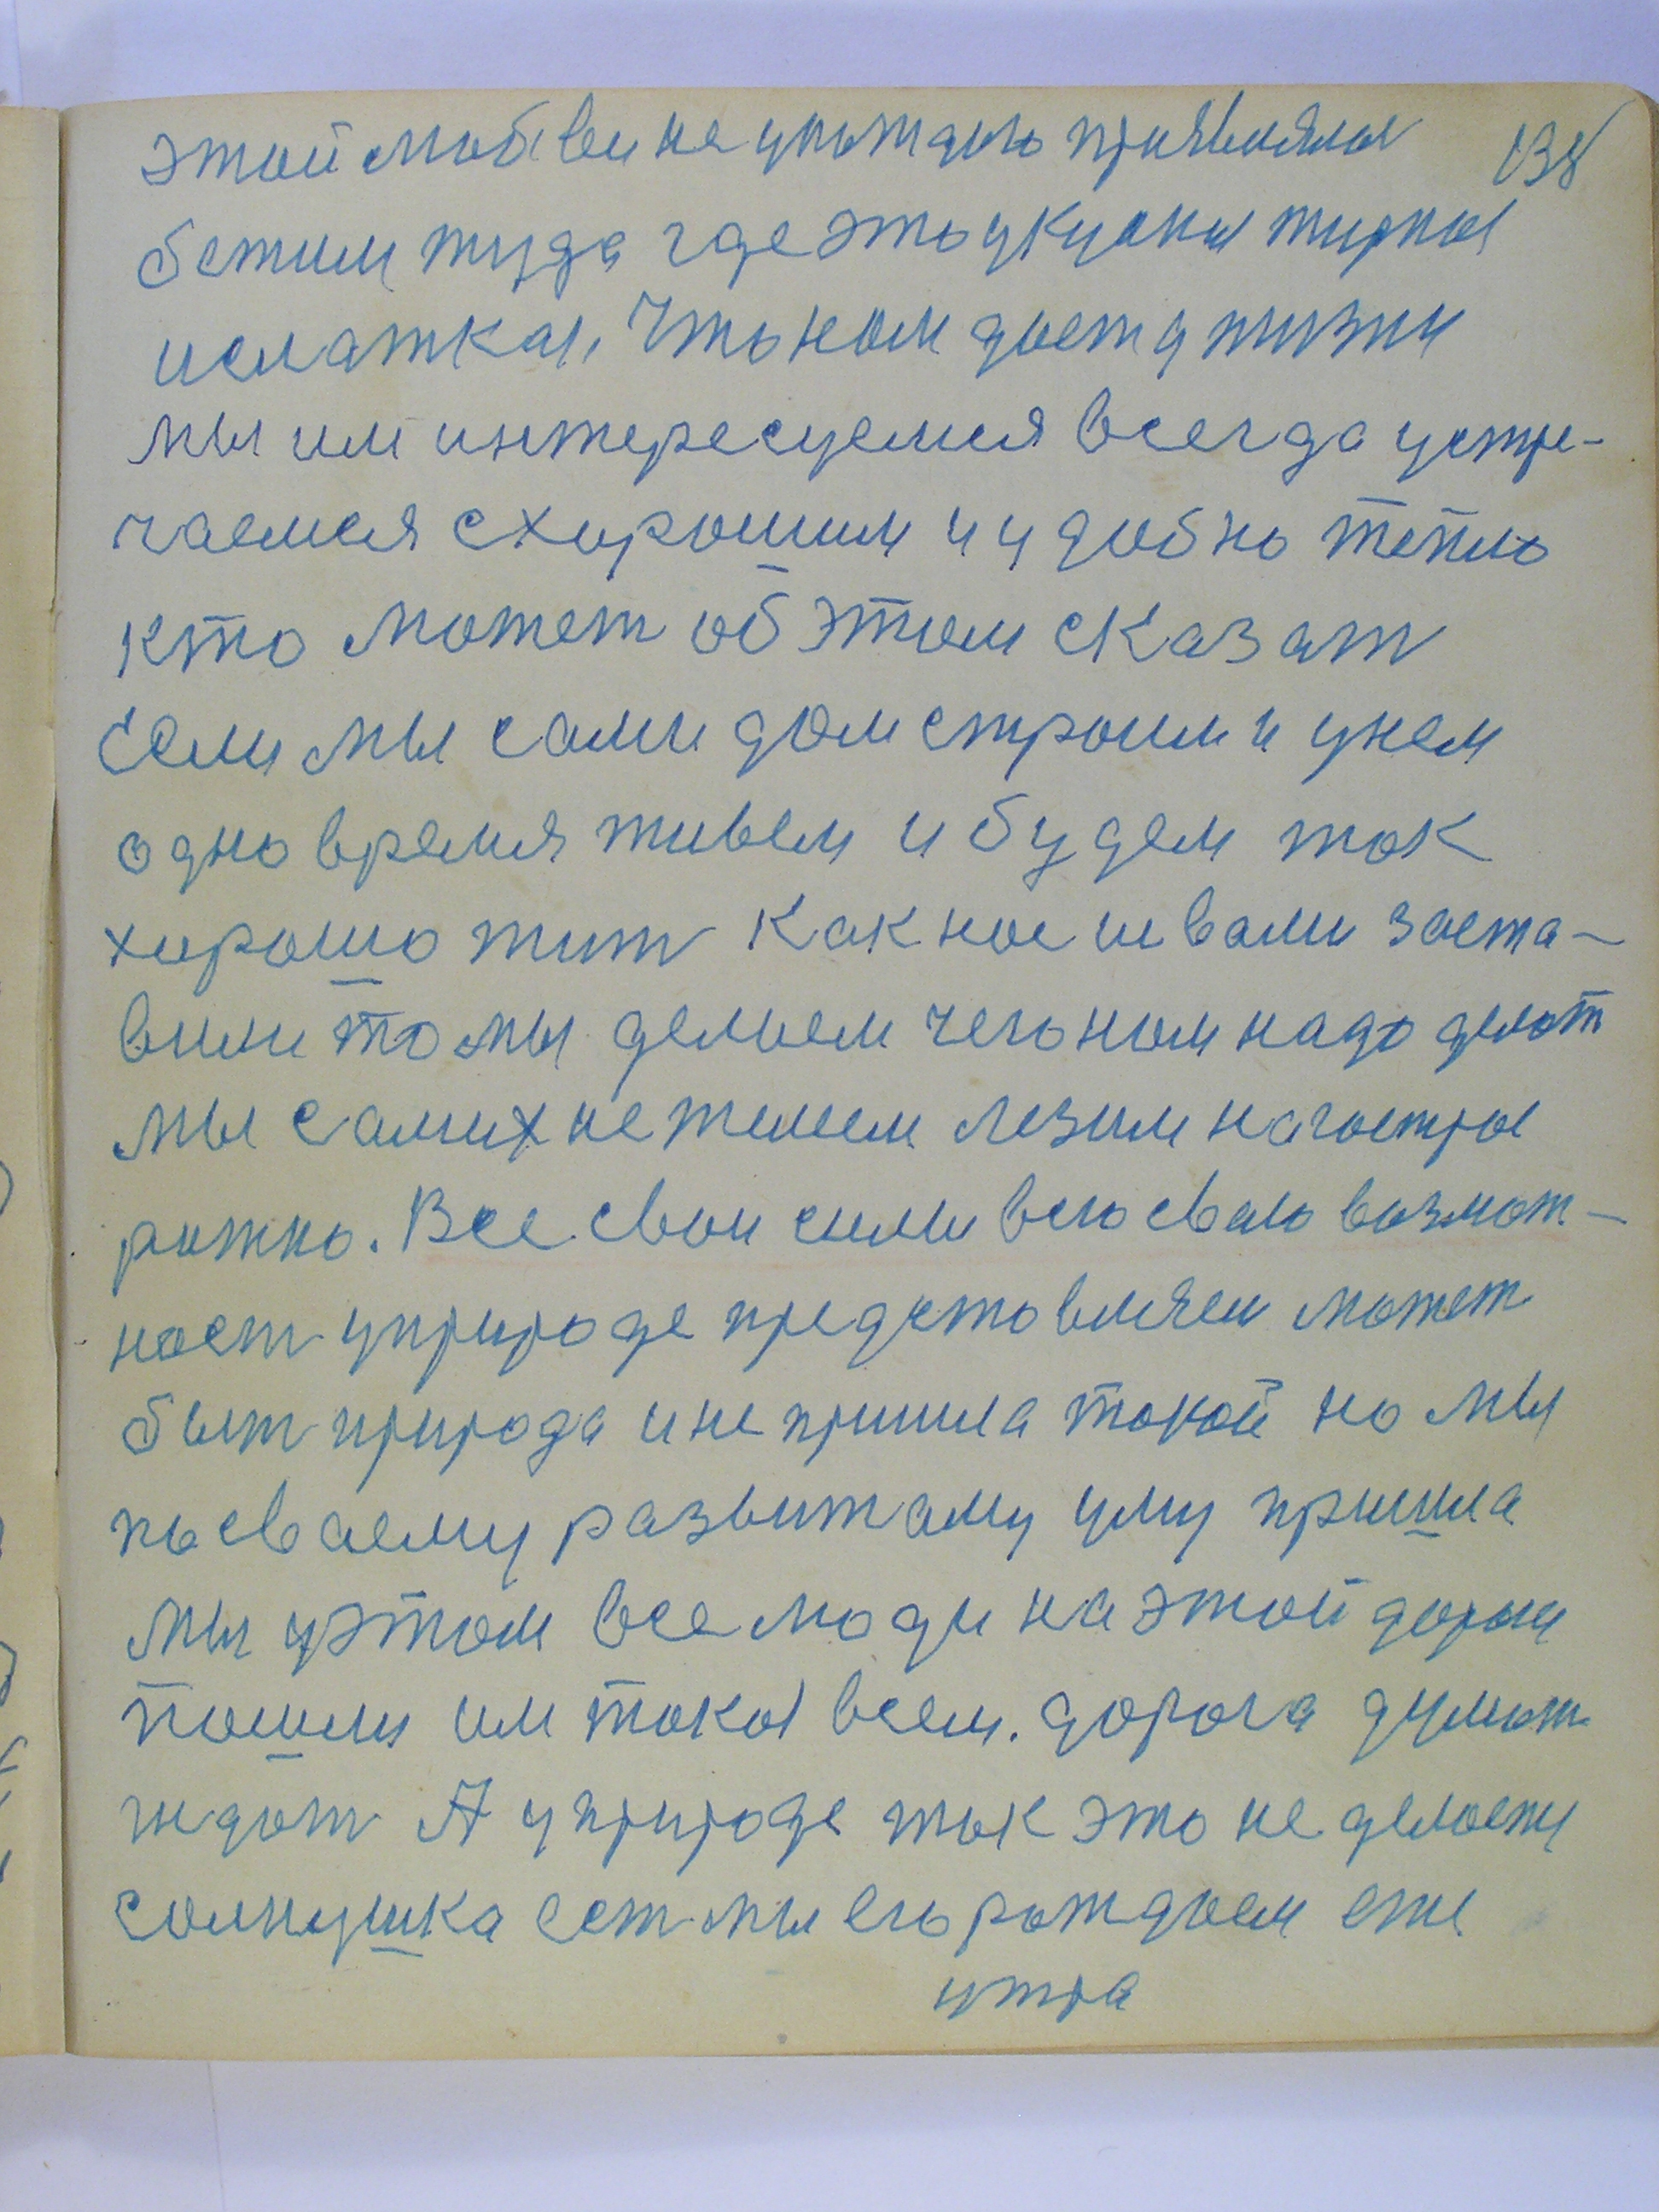 138
этой любви не употдого проявляли
бежим туда где это укусны жирны
исладкая, Что ном доет джизни
мы им интересуемся всегда устре-
чаемся схорошим и удобно тепло
кто может об этом сказат
Если мы сами дом строим и унем
одно время живем и будем ток
хорошо жит Как нос шевами заста-
вили то мы делаем чего ном надо делат
мы самих не жилеем лезим на гостры
рожно. Все свои сили всю сваю возмож-
ност уприроде предстовляем может
быт природа и не пришла токой но мы
по сваему развитаму уму пришла
мы уэтом все люди на этой дороги
пошли им токая всем. дорога думат
ждат А уприроде ток это не делоеш
солнушка ест мы его рождаем еже
утра